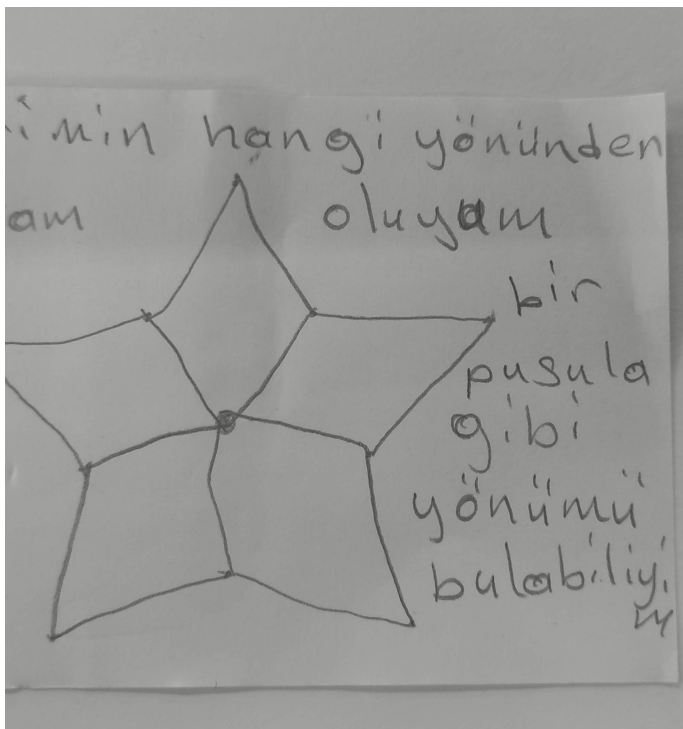 imin hangi yönünden
am oluyam
bir
pusula
gibi
yönümü
bulabiliyi
m